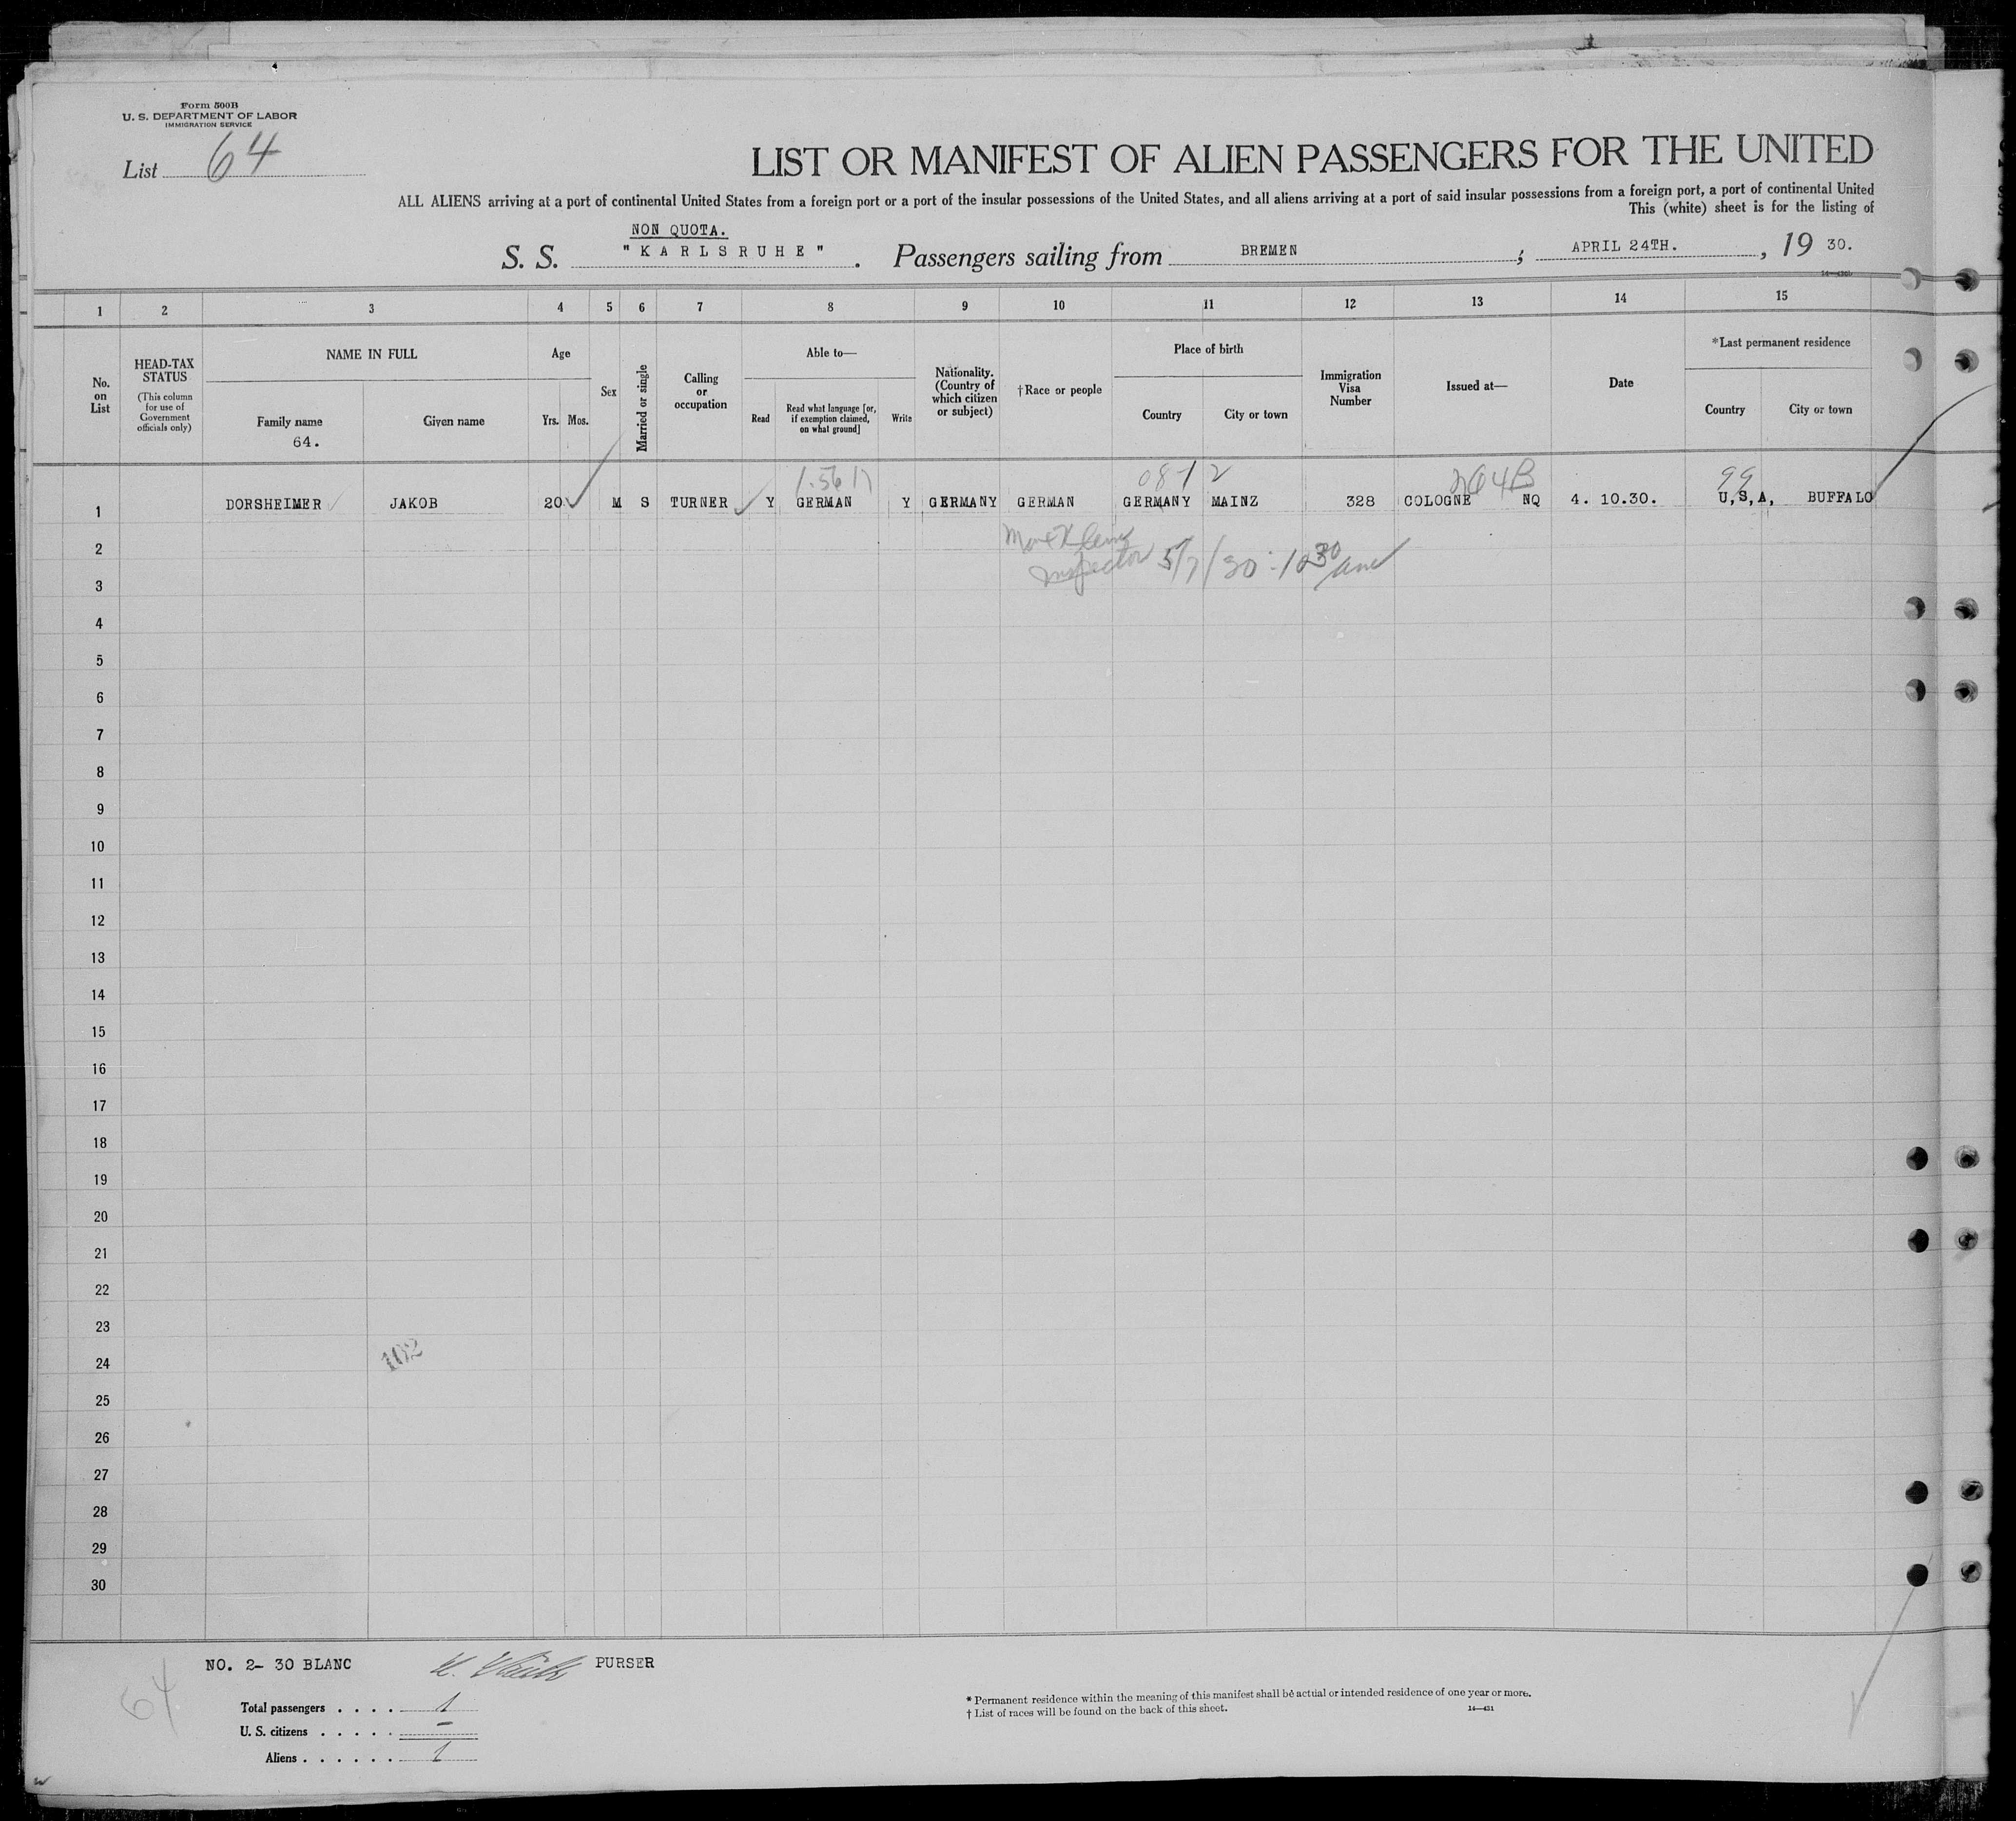 Form 500B
U. S. DEPARTMENT OF LABOR
IMMIGRATION SERVICE
List 64
LIST OR MANIFEST OF ALIEN PASSENGERS FOR THE UNITED
ALL ALIENS arriving at a port of continental United States from a foreign port or a port of the insular possessions of the United States, and all aliens arriving at a port of said insular possessions from a foreign port, a port of continental United
This (white) sheet is for the listing of
NON QUOTA.
S. S. "KARLSRUHE". Passengers sailing from BREMEN ; APRIL 24TH. , 19 30.
1 2 3 4 5 6 7 8 9 10 11 12 13 14 15
No. on List
HEAD-TAX STATUS
(This column for use of Government officials only)
NAME IN FULL
Family name
64.
Given name
Age
Yrs. Mos.
Sex
Married or single
Calling or occupation
Able to—
Read
Read what language [or, if exemption claimed, on what ground]
Write
Nationality. (Country of which citizen or subject)
†Race or people
Place of birth
Country
City or town
Immigration Visa Number
Issued at—
Date
*Last permanent residence
Country
City or town
0872 264B 99
1 DORSHEIMER JAKOB 20 M S TURNER Y GERMAN Y GERMANY GERMAN GERMANY MAINZ 328 COLOGNE NQ 4. 10.30. U,S,A, BUFFALO
2
Inspector 5/7/30 - 10 30 am
3
4
5
6
7
8
9
10
11
12
13
14
15
16
17
18
19
20
21
22
23
24
102
25
26
27
28
29
30
NO. 2- 30 BLANC PURSER
64
Total passengers . . . . 1
U. S. citizens . . . . . –
Aliens . . . . . . 1
* Permanent residence within the meaning of this manifest shall be actual or intended residence of one year or more.
† List of races will be found on the back of this sheet.
14—431